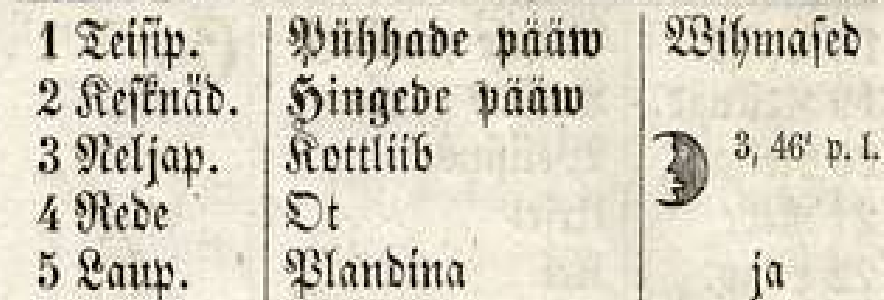 1 Teisip. Pühhade pääw Wihmased
2 Kesknäd. Hingede pääw
3 Neljap. Kottliib 3, 46' p. l.
4 Rede Ot
5 Laup. Plandina ja